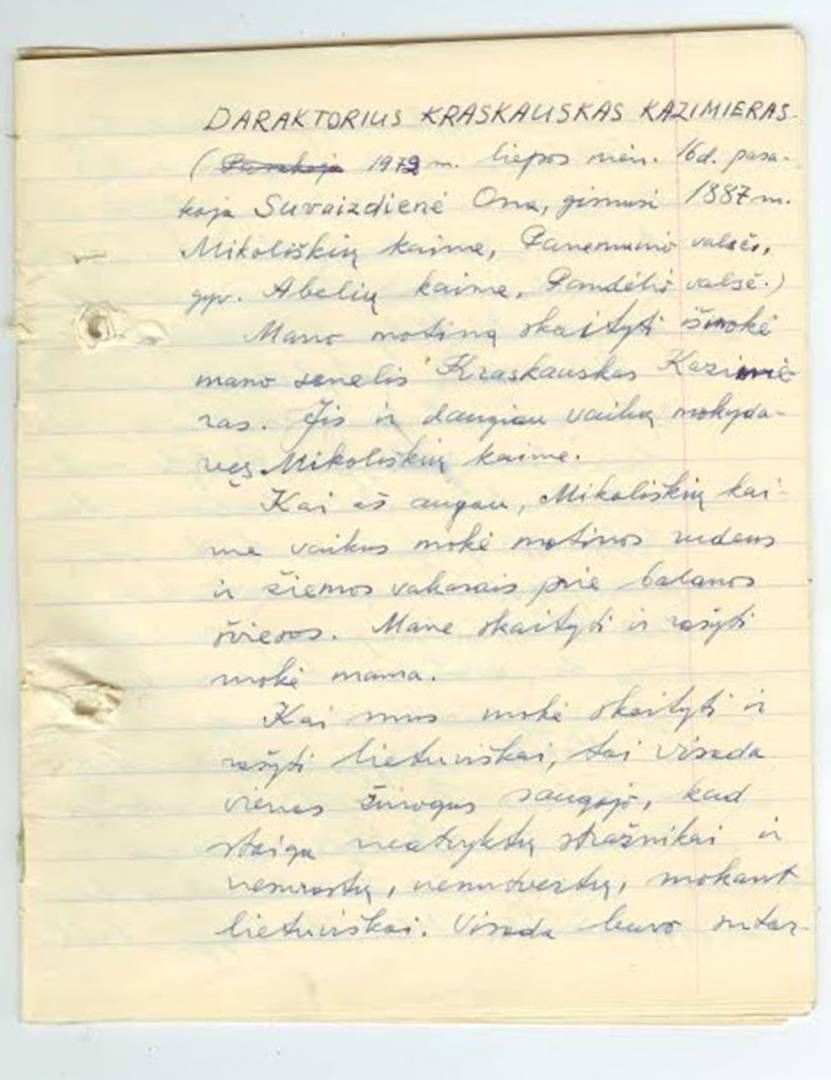 DARAKTORIUS KRASKAUSKAS KAZIMIERAS.
(Pasakoja 1972 m. liepos mėn. 16 d. pasa-
koja Suvaizdienė Ona, gimusi 1887 m.
Mikoliškių kaime, Panemunio valsč.,
gyv. Abelių kaime, Pandėlio valsč.)
Mano motiną skaityti išmokė
mano senelis Kraskauskas Kazimie-
ras. Jis ir daugiau vaikų mokyda-
vęs Mikoliškių kaime.
Kai aš augau, Mikoliškių kai-
me vaikus mokė motinos rudens
ir žiemos vakarais prie balanos
šviesos. Mane skaityti ir rašyti
mokė mama.
Kai mus mokė skaityti ir
rašyti lietuviškai, tai visada
vienas žmogus saugojo, kad
staiga neatvyktų stražnikai ir
nenutvertų, mokant
lietuviškai. Visada buvo sutar-